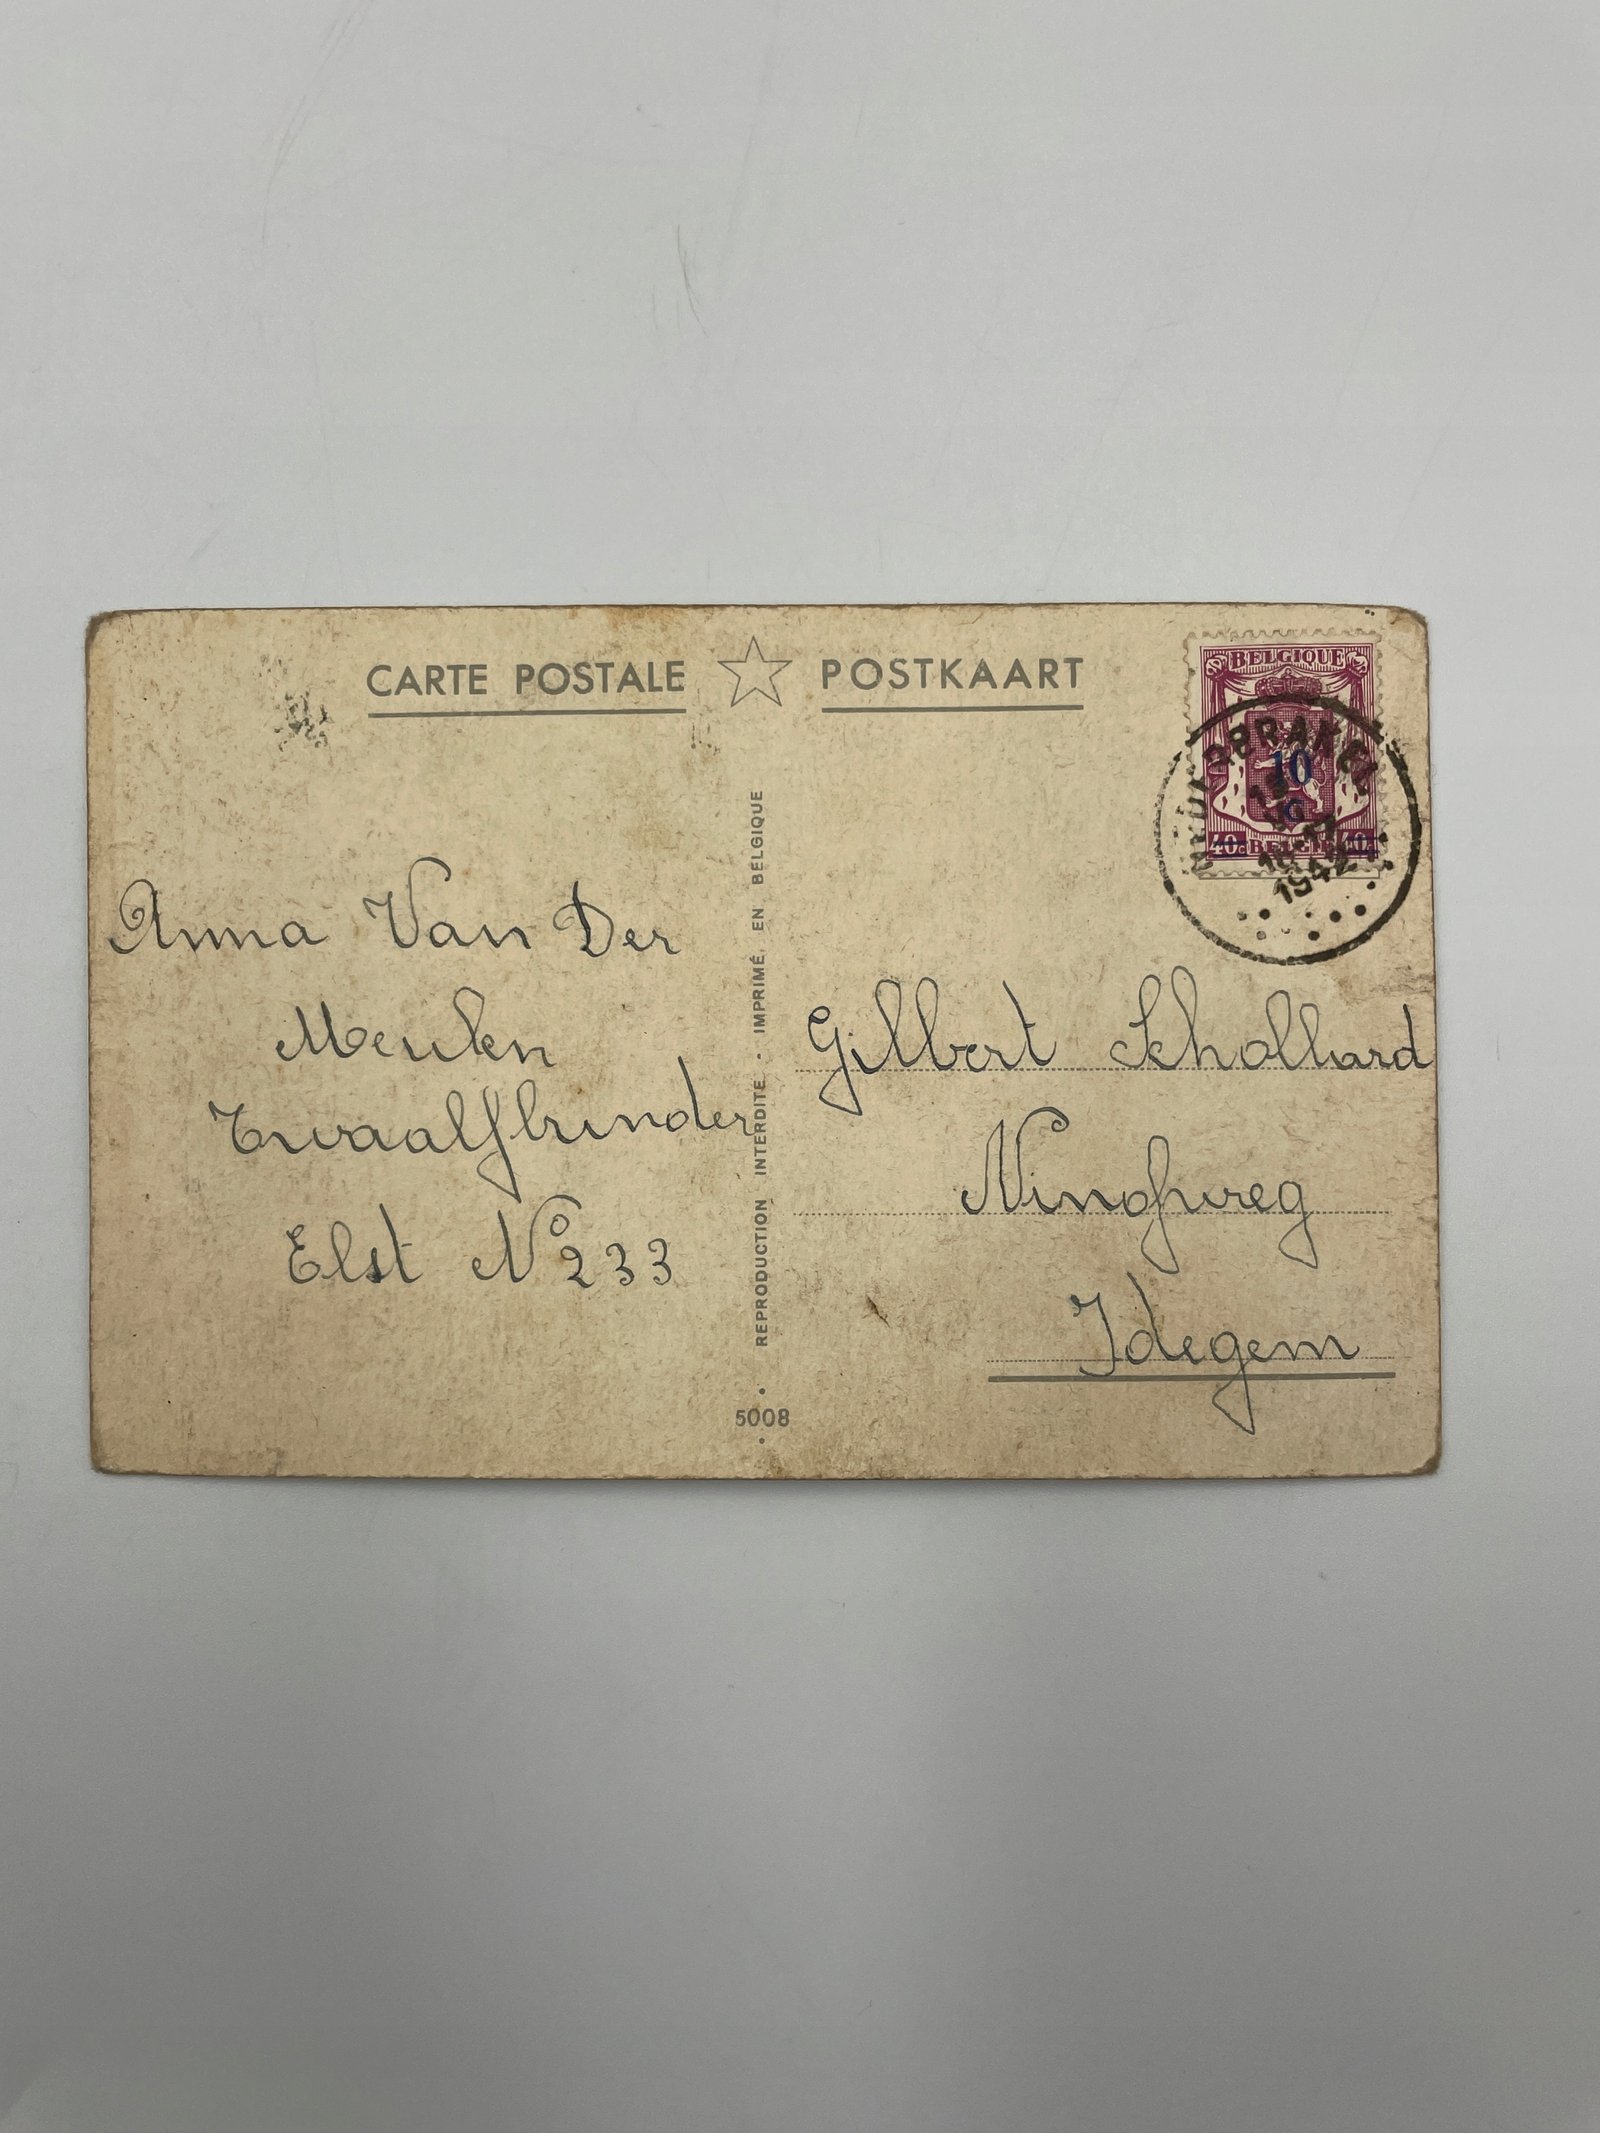 CARTE POSTALE ☆ POSTKAART
BELGIQUE
10
c
40c BELGIË 40c
1942
Anna Van Der
Meulen
Twaalfbunder
Elst Nº 233
REPRODUCTION INTERDITE • IMPRIMÉ EN BELGIQUE
5008
Gilbert Schollard
Ninofweg
Idegem